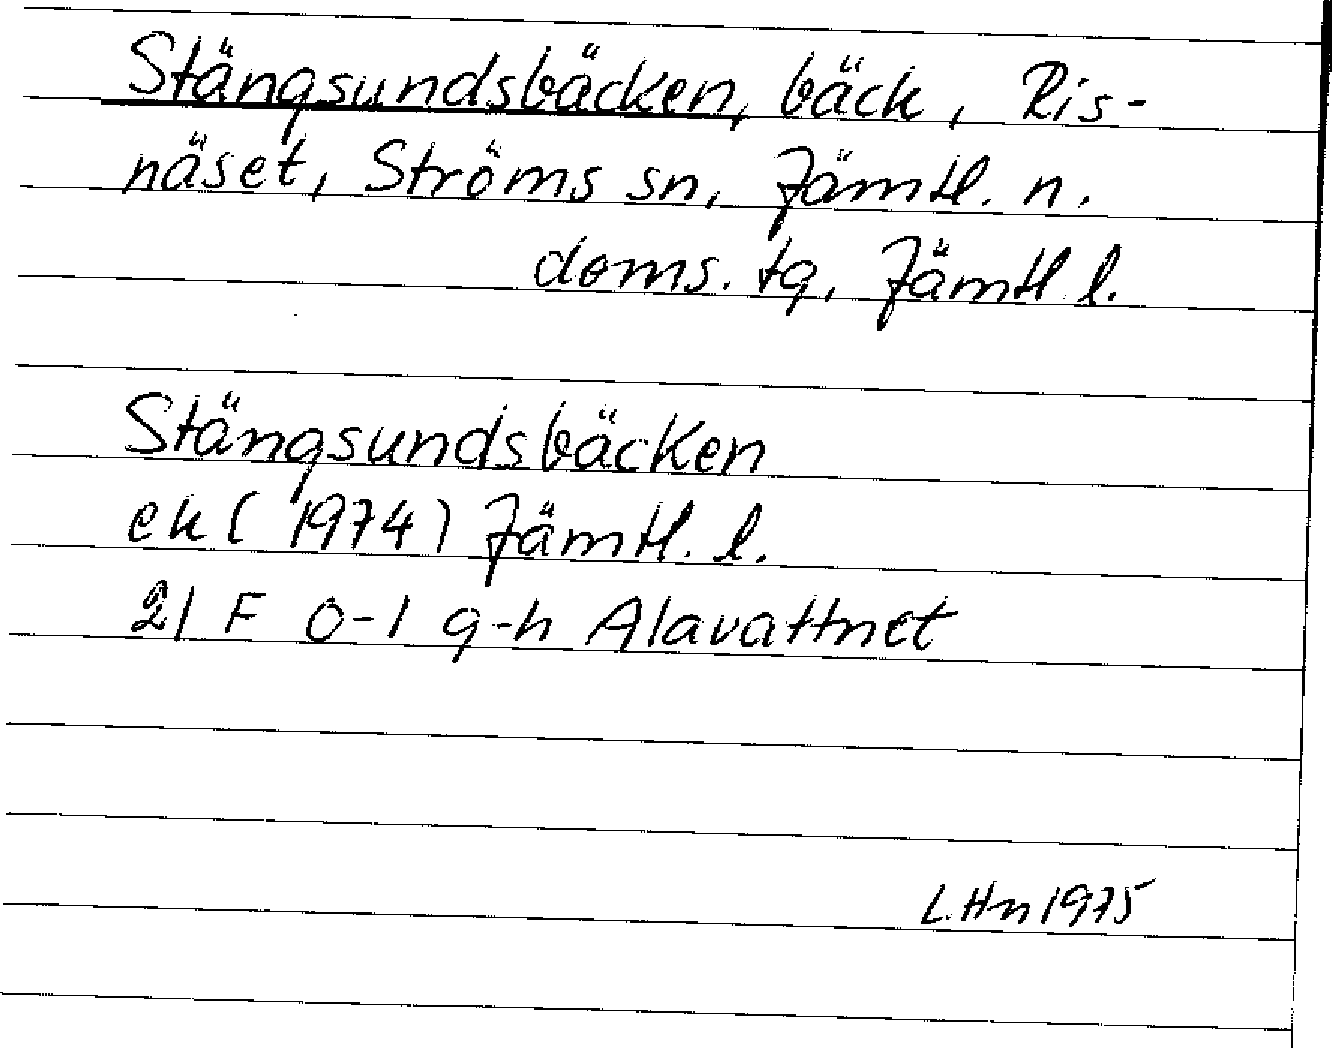 Stängsundsbäcken, bäck, Ris-
näset, Ströms sn, Jämtl. n.
doms. tg, Jämtl l.
Stängsundsbäcken
ek (1974) Jämtl. l.
21 F 0-1 g-h Alavattnet
L.Hn 1975